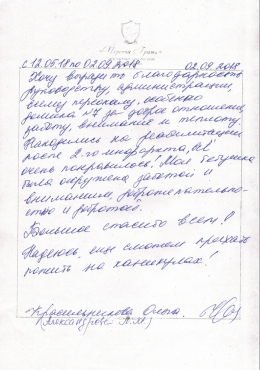 с 12.05.18 по 02.09.2018 02.09.2018
Хочу выразить благодарность
руководству, администрации,
всему персоналу, особенно
домика №7 за доброе отношение,
заботу, внимание и теплоту.
Находились на реабилитации
после 2-го инфаркта, всё
очень понравилось! Моя бабушка
была окружена заботой и
вниманием, доброжелательно-
стью и добротой.
Большое спасибо всем!
Надеюсь, ещё сможем приехать
пожить на каникулах!
Красильникова Ольга.
(Александрова А.М)